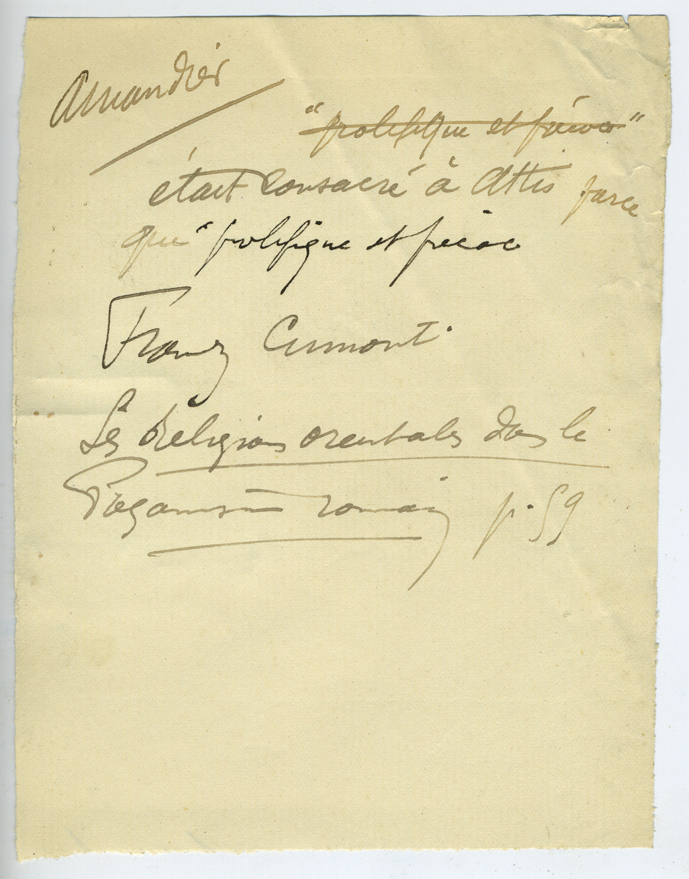 Amandier
"prolifique et précoce"
était consacré à Attis parce
que "prolifique et précoce
Franz Cumont.
Les Religions orientales dans le
Paganisme romain p. 59